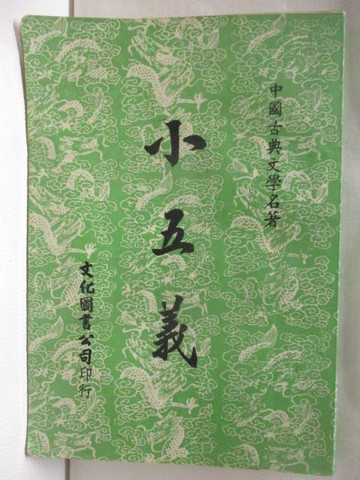 中國古典文學名著
小五義
文化圖書公司印行